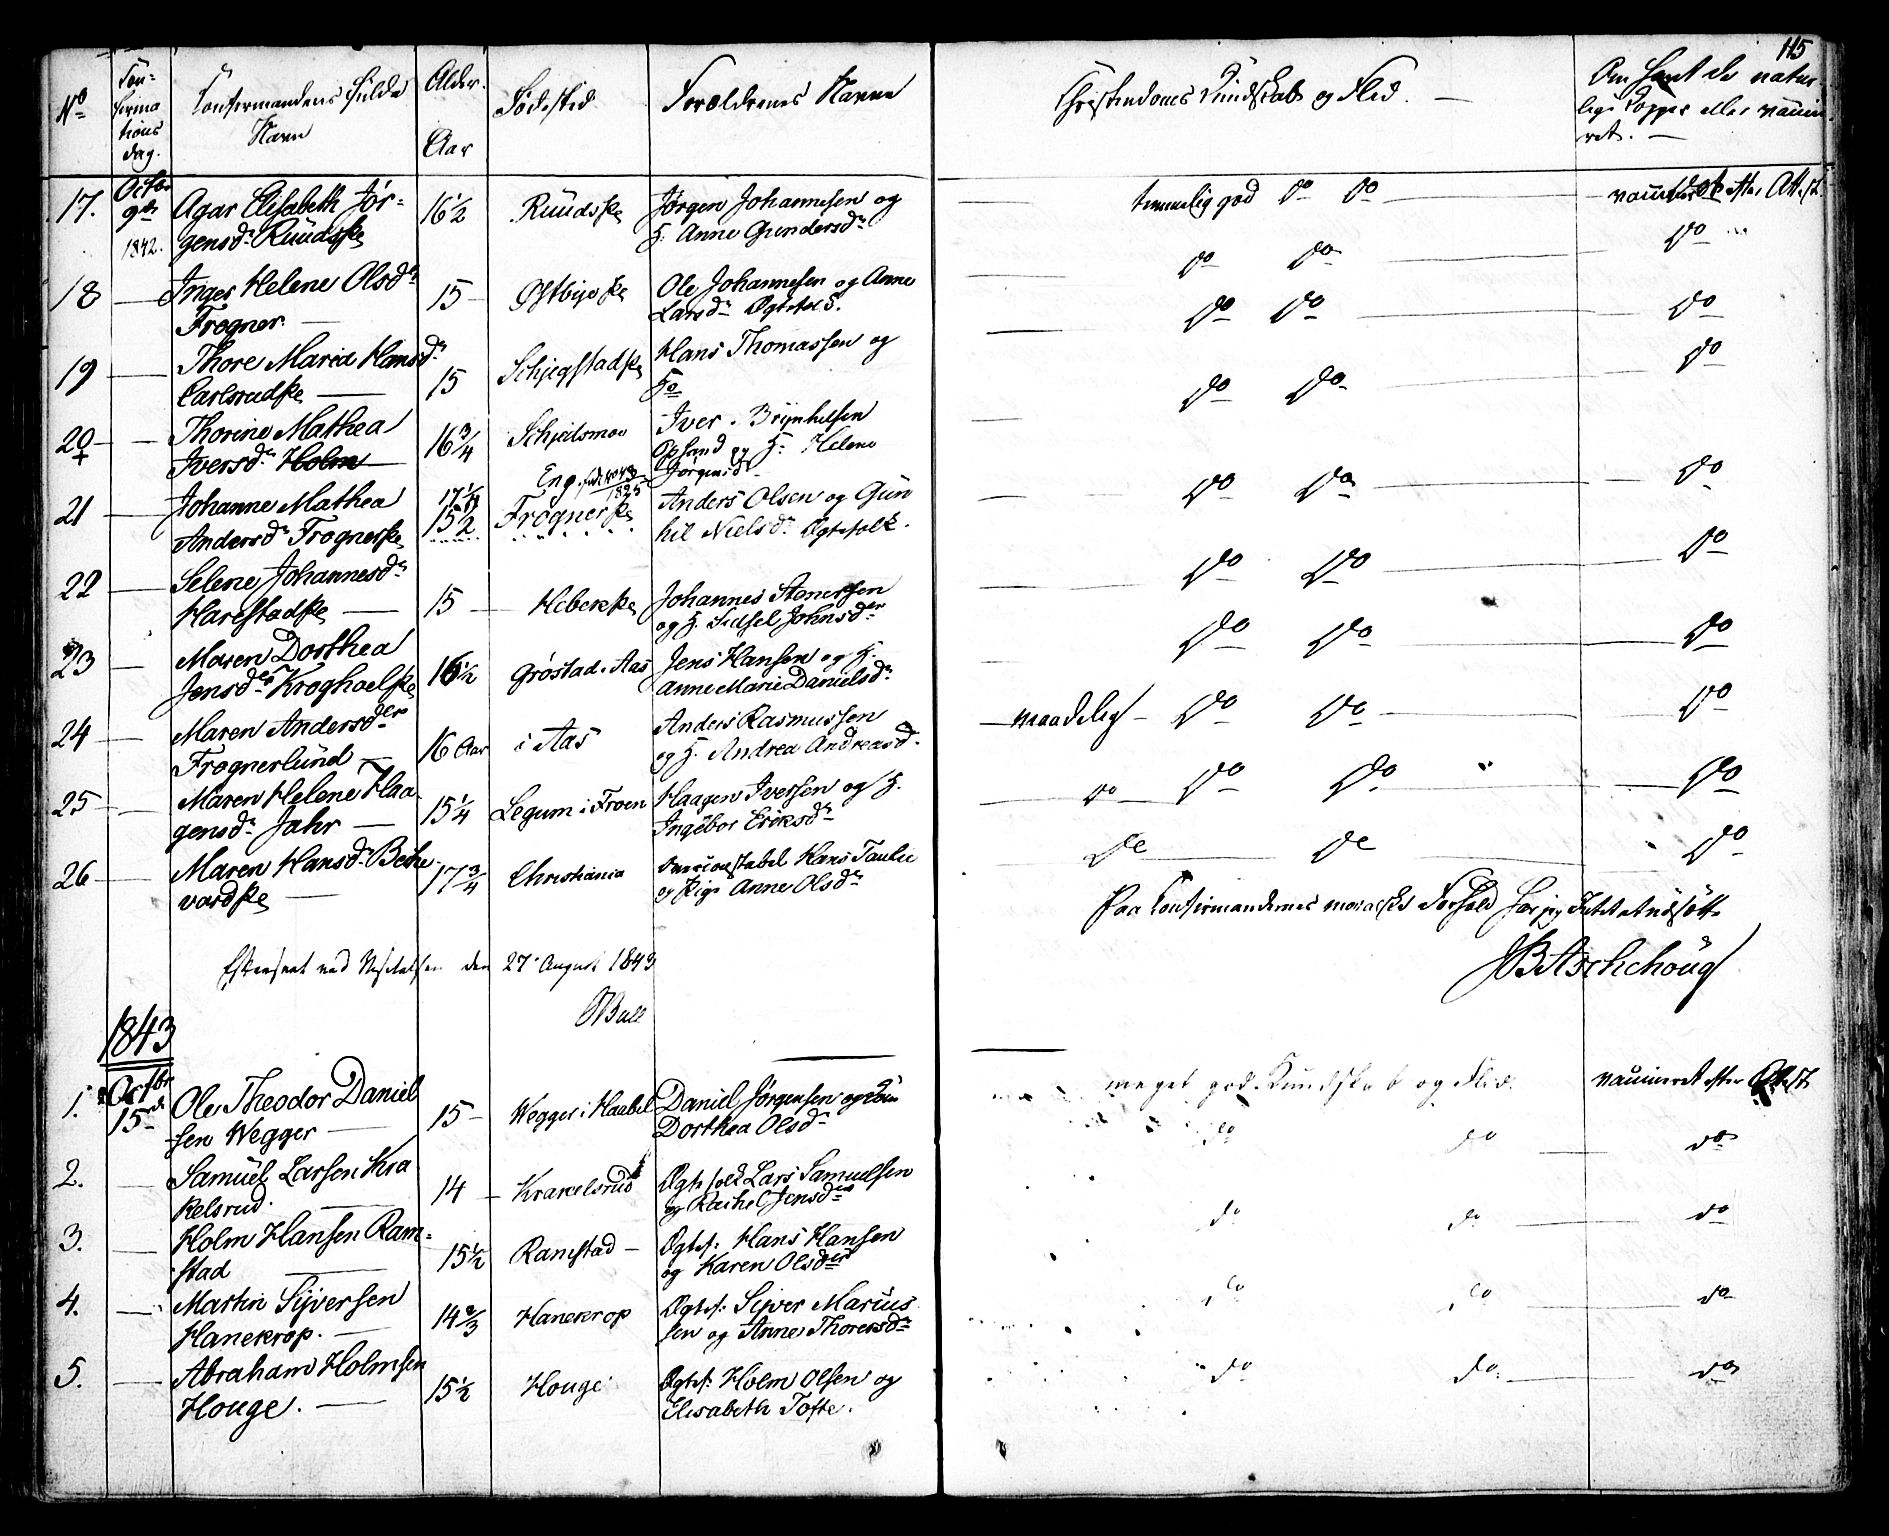 115
No
Con-
firma
tions
dag.
Confirmandens fulde
Navn
Alder.
Aar
Fødested
Forældrenes Navne
Christendoms Kundskab og Flid. —
Om havt de natur-
lige Kopper eller vaccine-
ret. —
17. Octbr
9de
1842.
Agar Elisabeth Jør-
gensdr Ruudske
16 1/2
Ruudske
Jørgen Johannesen og
H. Anne Gundersdr
temmelig god Do Do
vaccineret efter Attest.
18 — Inger Helene Olsdr
Frogner. —
15 —
Østbyeske
Ole Johannesen og Anne
Larsdr Ægtefolk.
Do Do
Do
19 — Thore Maria Hansdr
Carlsrudske —
15
Schjegstadske
Hans Thomassen og
Do Do
Do
20 — Thorine Mathea
Iversdr Holm
16 3/4
Schjeilsmoe
Iver Brynhelsen
Opsand og H. Helene
Jørgensdr
Do Do
Do
21 — Johanne Mathea
Andersdr Frognerske
17 1/4
15 1/2
Eng.
1825
Frognerske
Anders Olsen og Gun
hil Nielsdr Ægtefolk.
Do Do
Do
22 — Selene Johannesdr
Harestadske —
15 —
Hebekke
Johannes Stenersen
og H. Sidsel Johnsdr
Do Do
Do
23 — Maren Dorthea
Jensdr Kroghoelske
16 1/2
Grøstad i Aas
Jens Hansen og H.
Anne Marie Danielsdr
Do Do
Do
24 — Maren Andersdr
Frognerlund —
16 Aar
i Aas
Anders Rasmussen
og H. Andrea Andreasdr
— maadelig — Do Do
Do
25 — Maren Helene Haa-
gensdr Jahr —
15 1/4
Legum i Froen
Haagen Iversen og H.
Ingebor Eriksdr
Do — Do Do
Do
26 — Maren Hansdr Bethe-
vardske —
17 3/4
Christiania
Hans Paulie
og Pige Anne Olsdr
Do Do
Do
Paa Confirmandernes moralske Forhold har jeg Intet at udsætte
JB Aschehoug
Efterseet ved Visitatsen den 27 August 1843
Bull
1843
1. Octbr
15de
Ole Theodor Daniel
sen Wegger —
15 —
Wegger i Haabel
Daniel Jørgensen og
Dorthea Olsdr
meget god Kundskab og Flid.
vaccineret efter Attest
2. — Samuel Larsen Kra
kelsrud. —
14 —
Krakelsrud
Ægtefolk Lars Samuelsen
og Rachel Jensdr
do do
do
3. — Holm Hansen Ram-
stad —
15 1/2
Ramstad —
Ægtef: Hans Hansen
og Karen Olsdr
do do
do
4. — Martin Syversen
Hanekrop. —
14 2/3
Hanekrop
Ægtef: Syver Marius
sen og Anne Thoresdr
do do
do
5. — Abraham Holmsen
Houge. —
15 1/2
Houge
Ægtef: Holm Olsen og
Elisabeth Tofte.
do do
do